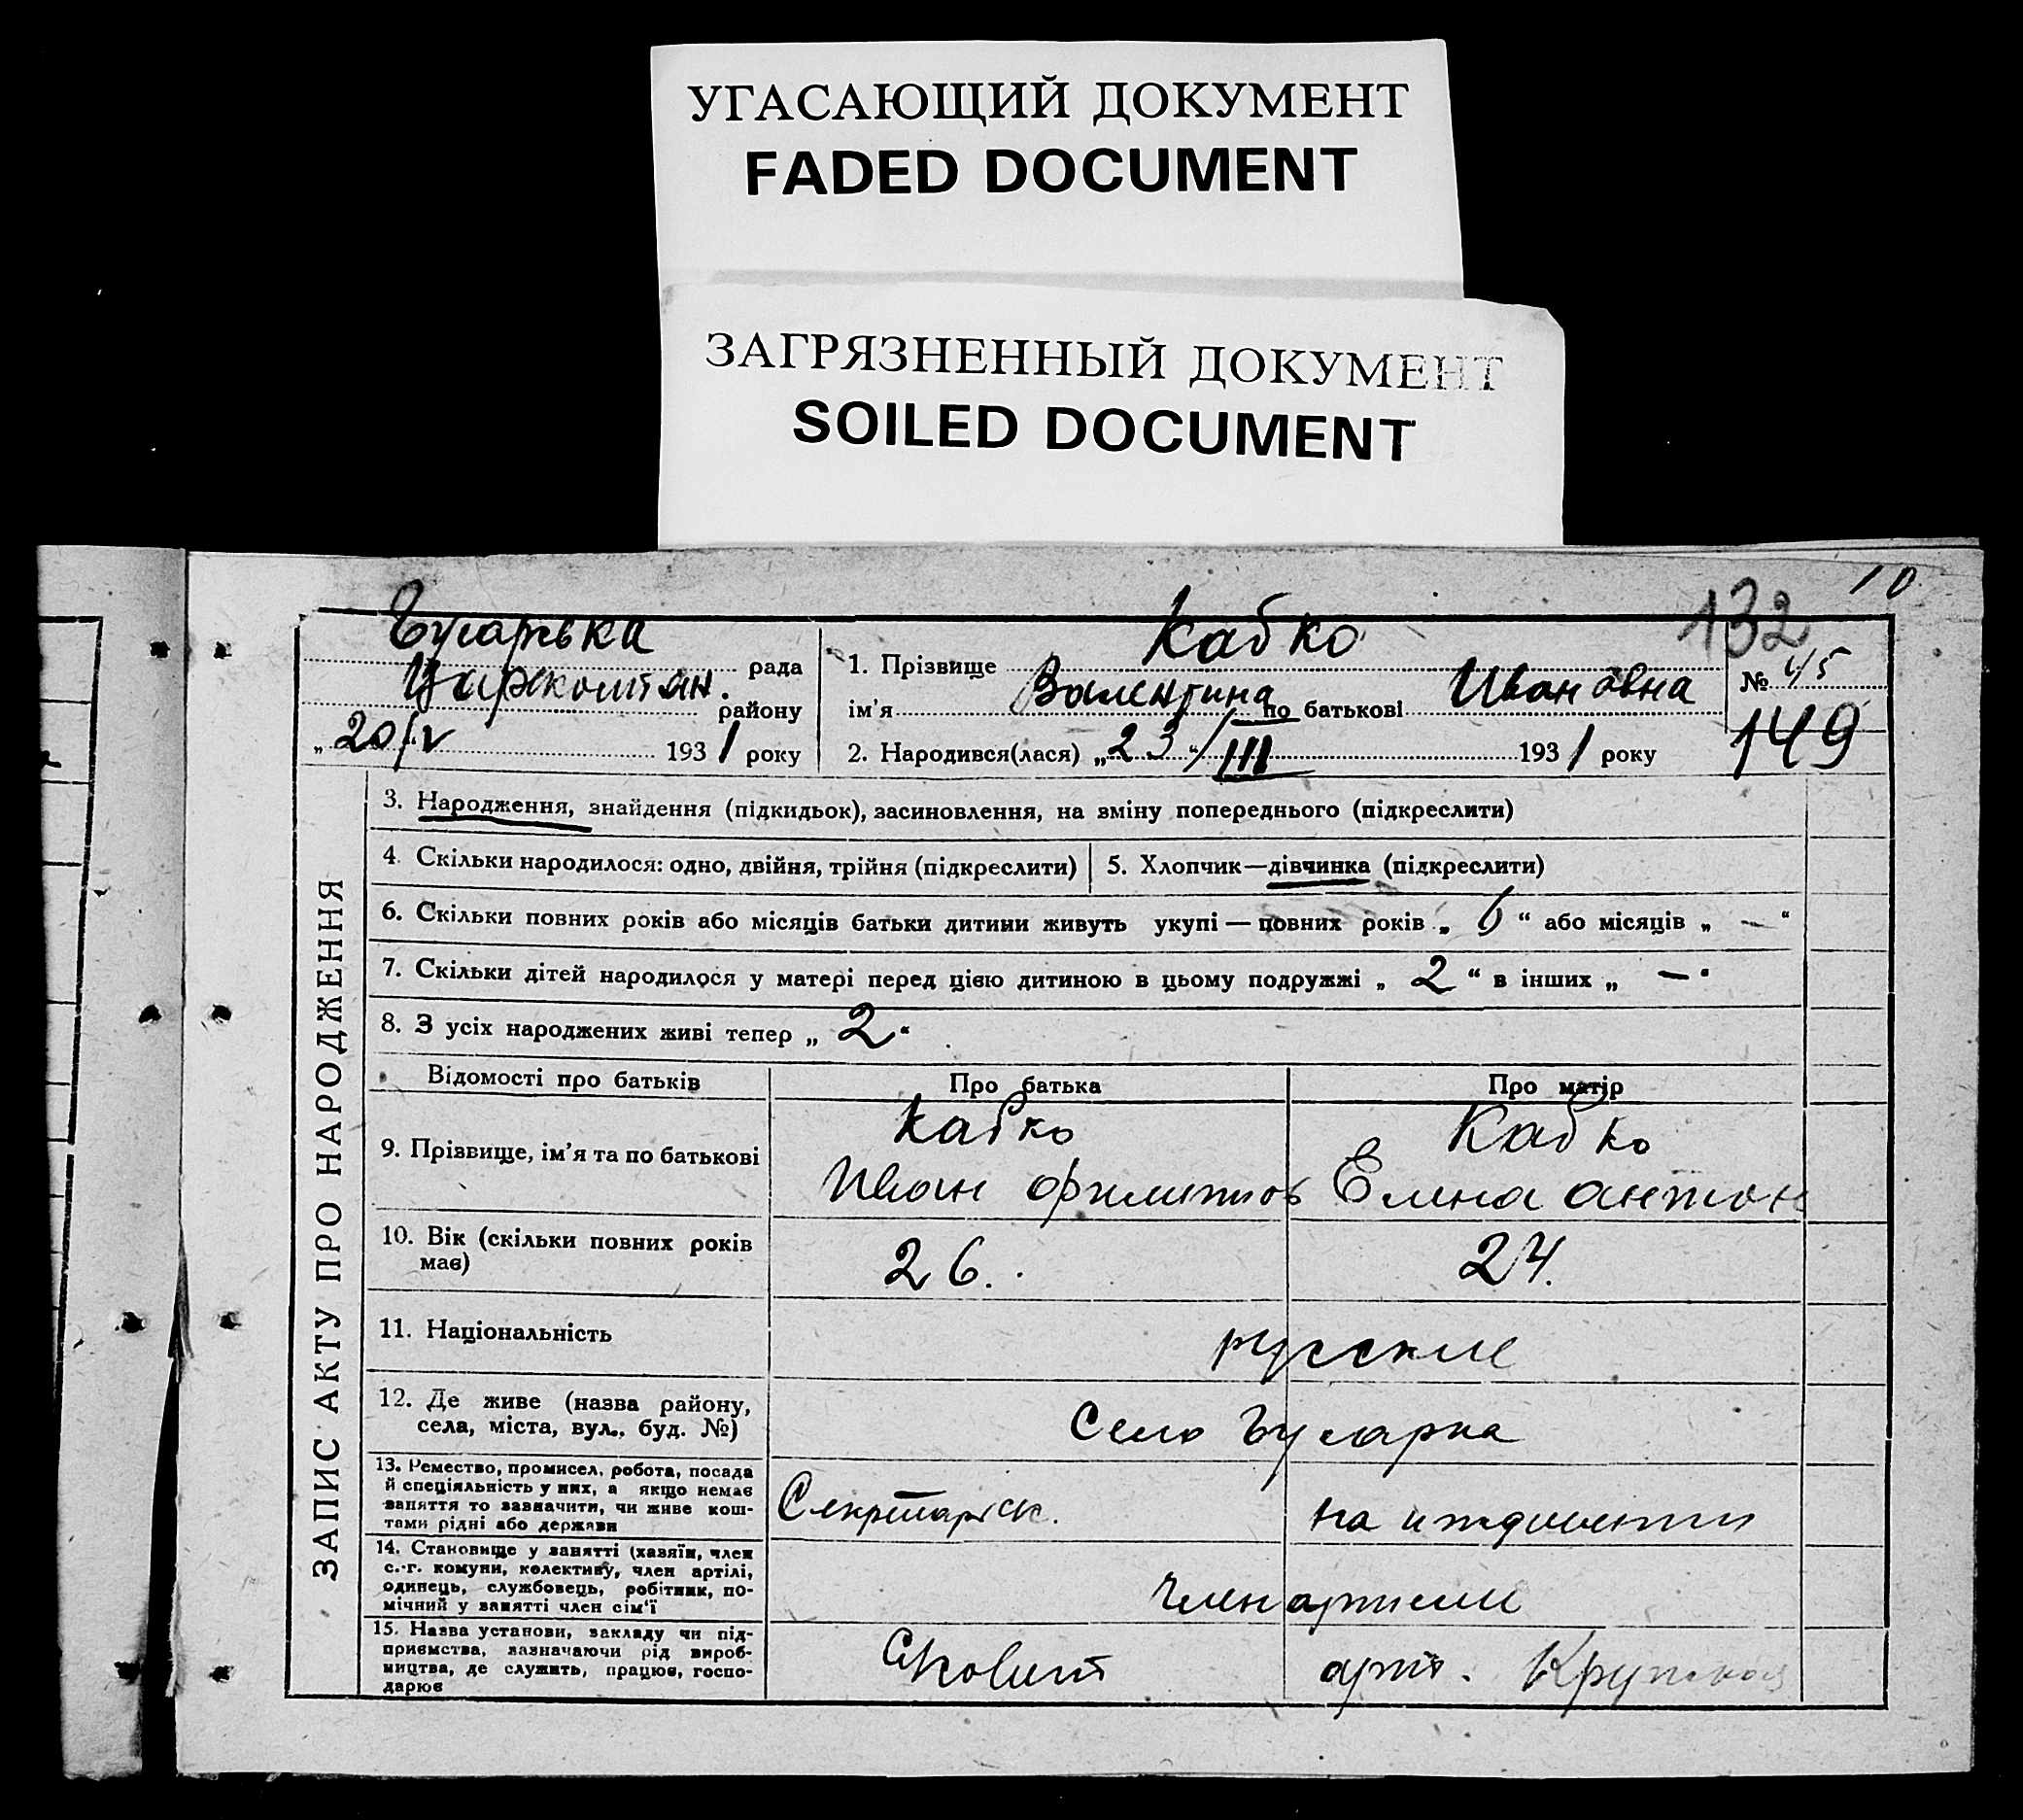 УГАСАЮЩИЙ ДОКУМЕНТ
FADED DOCUMENT
ЗАГРЯЗНЕННЫЙ ДОКУМЕНТ
SOILED DOCUMENT
10
132
рада
району
„20/IV 1931 року
1. Прізвище Кабко
ім'я Валентина по батькові Ивановна
2. Народився(лася) „23“/III 1931 року
№ 45
149
ЗАПИС АКТУ ПРО НАРОДЖЕННЯ
3. Народження, знайдення (підкидьок), засиновлення, на зміну попереднього (підкреслити)
4. Скільки народилося: одно, двійня, трійня (підкреслити)
5. Хлопчик—дівчинка (підкреслити)
6. Скільки повних років або місяців батьки дитини живуть укупі — повних років „ 6 “ або місяців „ — “
7. Скільки дітей народилося у матері перед цією дитиною в цьому подружжі „ 2 “ в інших „ — “
8. З усіх народжених живі тепер „ 2 “
Відомості про батьків
Про батька
Про матір
9. Прізвище, ім'я та по батькові
Кабко
Иван Филипов
Кабко
Елена Антон
10. Вік (скільки повних років
має)
26.
24.
11. Національність
русские
12. Де живе (назва району,
села, міста, вул., буд. №)
Село
13. Ремество, промисел, робота, посада
й спеціяльність у них, а якщо немає
заняття то зазначити, чи живе кош-
тами рідні або держави
Секретарь с/с.
на иждивении
14. Становище у занятті (хазяїн, член
с.-г. комуни, колективу, член артілі,
одинець, службовець, робітник, по-
мічний у занятті член сім'ї
член артели
15. Назва установи, закладу чи під-
приємства, зазначаючи рід вироб-
ництва, де служить, працює, госпо-
дарює
арт. Крупской